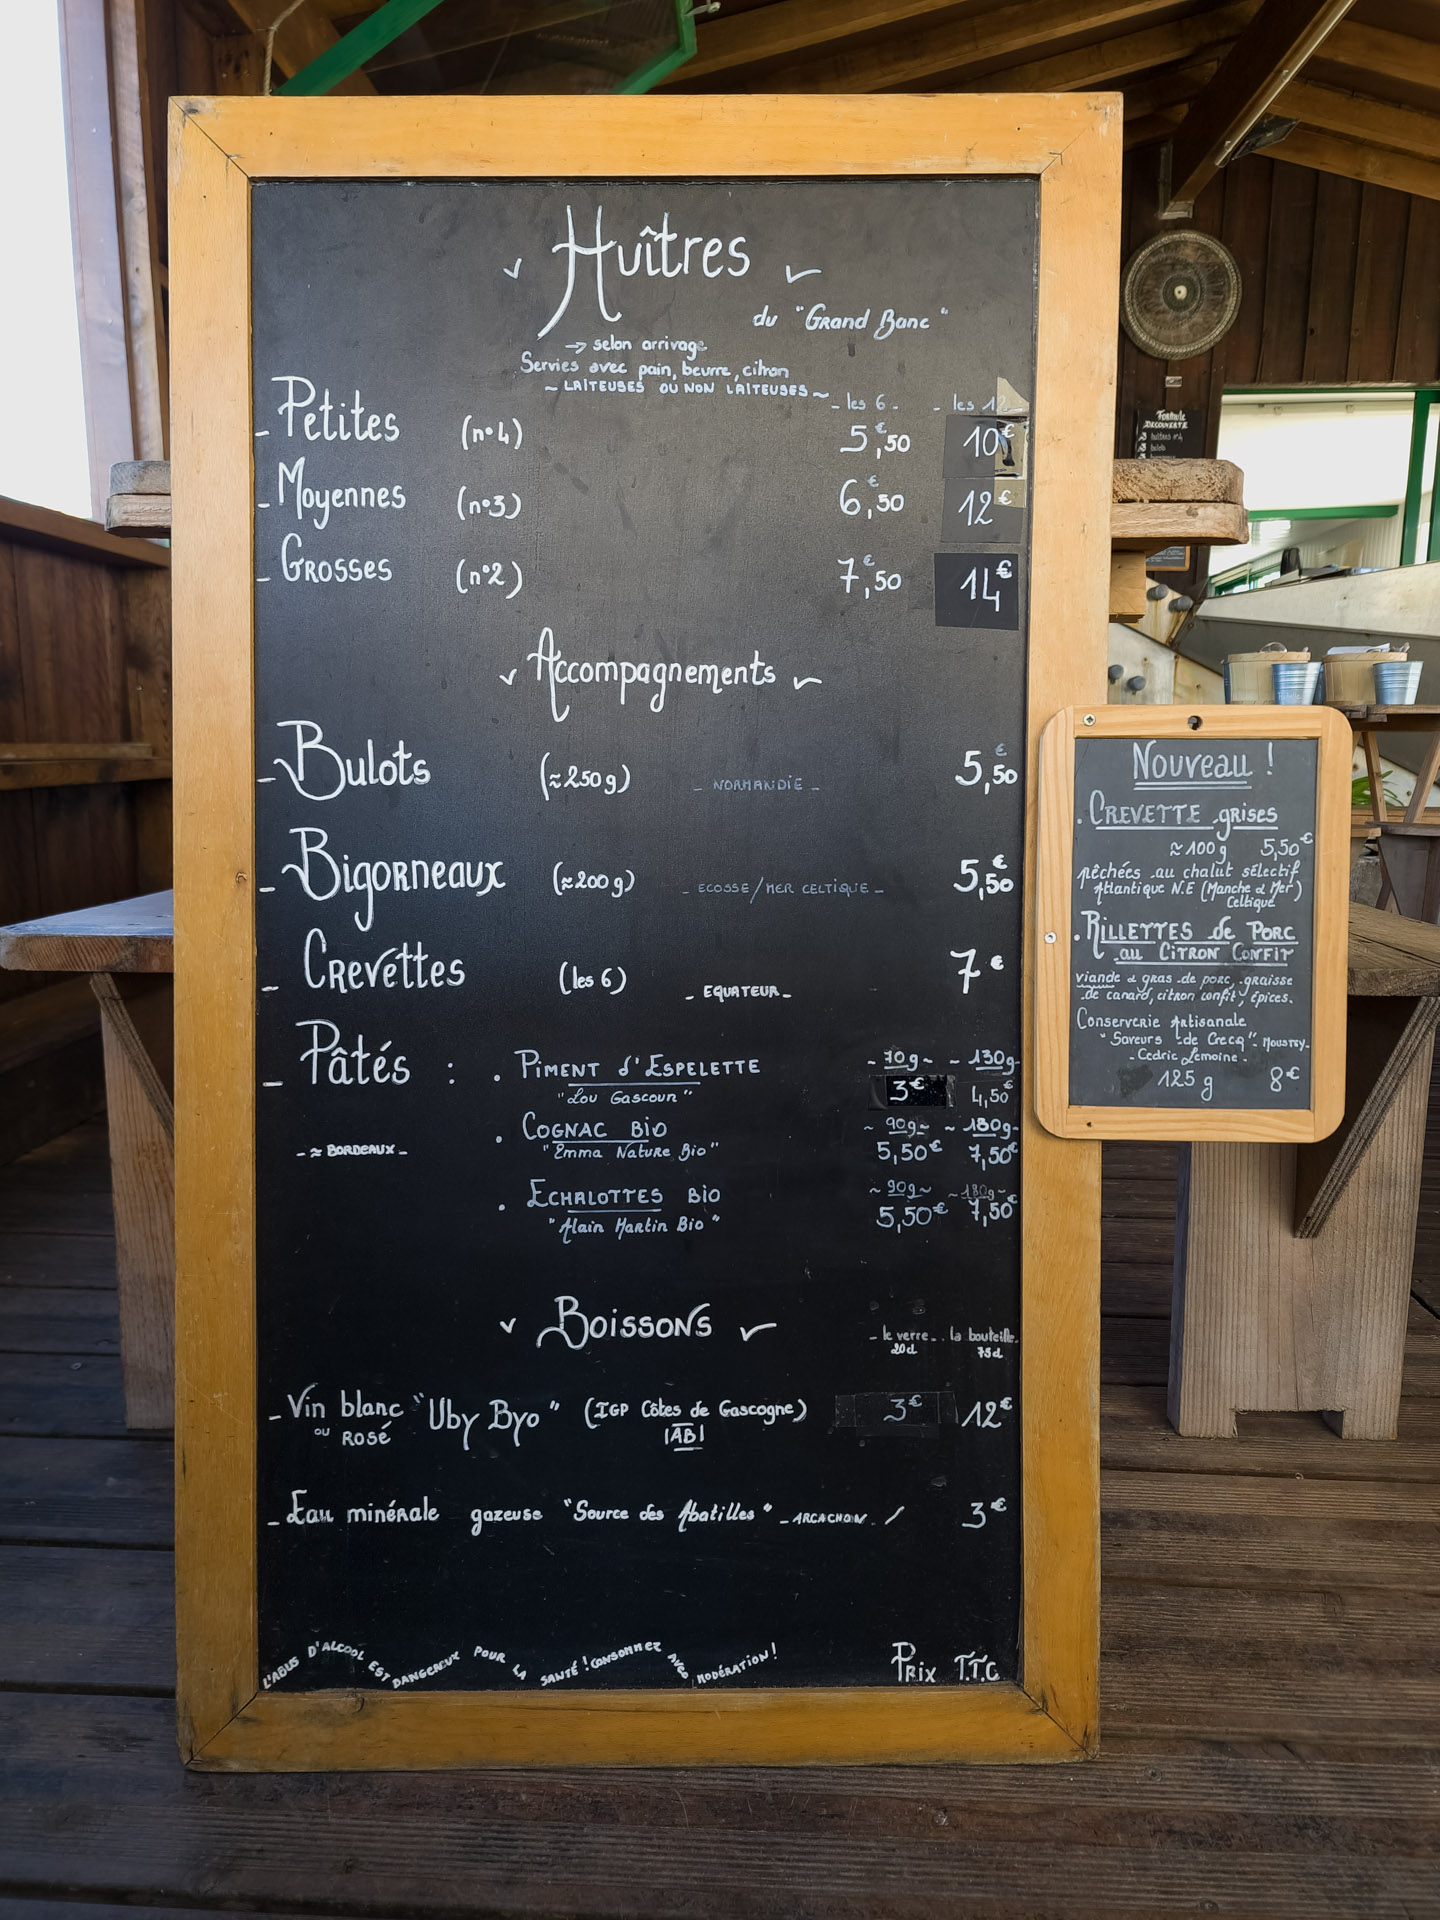 Huîtres
du "Grand Banc"
→ selon arrivage
Servies avec pain, beurre, citron
~ LAITEUSES OU NON LAITEUSES ~
- les 6 - - les 12 -
- Petites (n°4) 5,50€ 10€
- Moyennes (n°3) 6,50€ 12€
- Grosses (n°2) 7,50€ 14€
Accompagnements
- Bulots (≈250g) - NORMANDIE - 5,50€
- Bigorneaux (≈200g) - ECOSSE/MER CELTIQUE - 5,50€
- Crevettes (les 6) - EQUATEUR - 7€
- Pâtés : . PIMENT d'ESPELETTE ~ 70g ~ ~ 130g ~
"Lou Gascoun" 3€ 4,50€
. COGNAC BIO ~ 90g ~ ~ 180g ~
- ≈ BORDEAUX - "Emma Nature Bio" 5,50€ 7,50€
. ECHALOTTES BIO ~ 90g ~ ~ 180g ~
"Alain Martin Bio" 5,50€ 7,50€
Boissons
- le verre - - la bouteille -
20cl 75cl
- Vin blanc "Uby Byo" (IGP Côtes de Gascogne) 3€ 12€
ou ROSÉ |AB|
- Eau minérale gazeuse "Source des Abatilles" - ARCACHON - / 3€
L'ABUS D'ALCOOL EST DANGEREUX POUR LA SANTÉ ! CONSOMMEZ AVEC MODÉRATION !
Prix T.T.C
Nouveau !
. CREVETTE grises
≈100g 5,50€
pêchées au chalut sélectif
Atlantique N.E (Manche & Mer)
Celtique
. RILLETTES de PORC
au CITRON CONFIT
viande & gras de porc, graisse
de canard, citron confit, épices.
Conserverie Artisanale
"Saveurs de Crecq" - MOUSTEY -
- Cedric Lemoine -
125 g 8€
FORMULE
DECOUVERTE